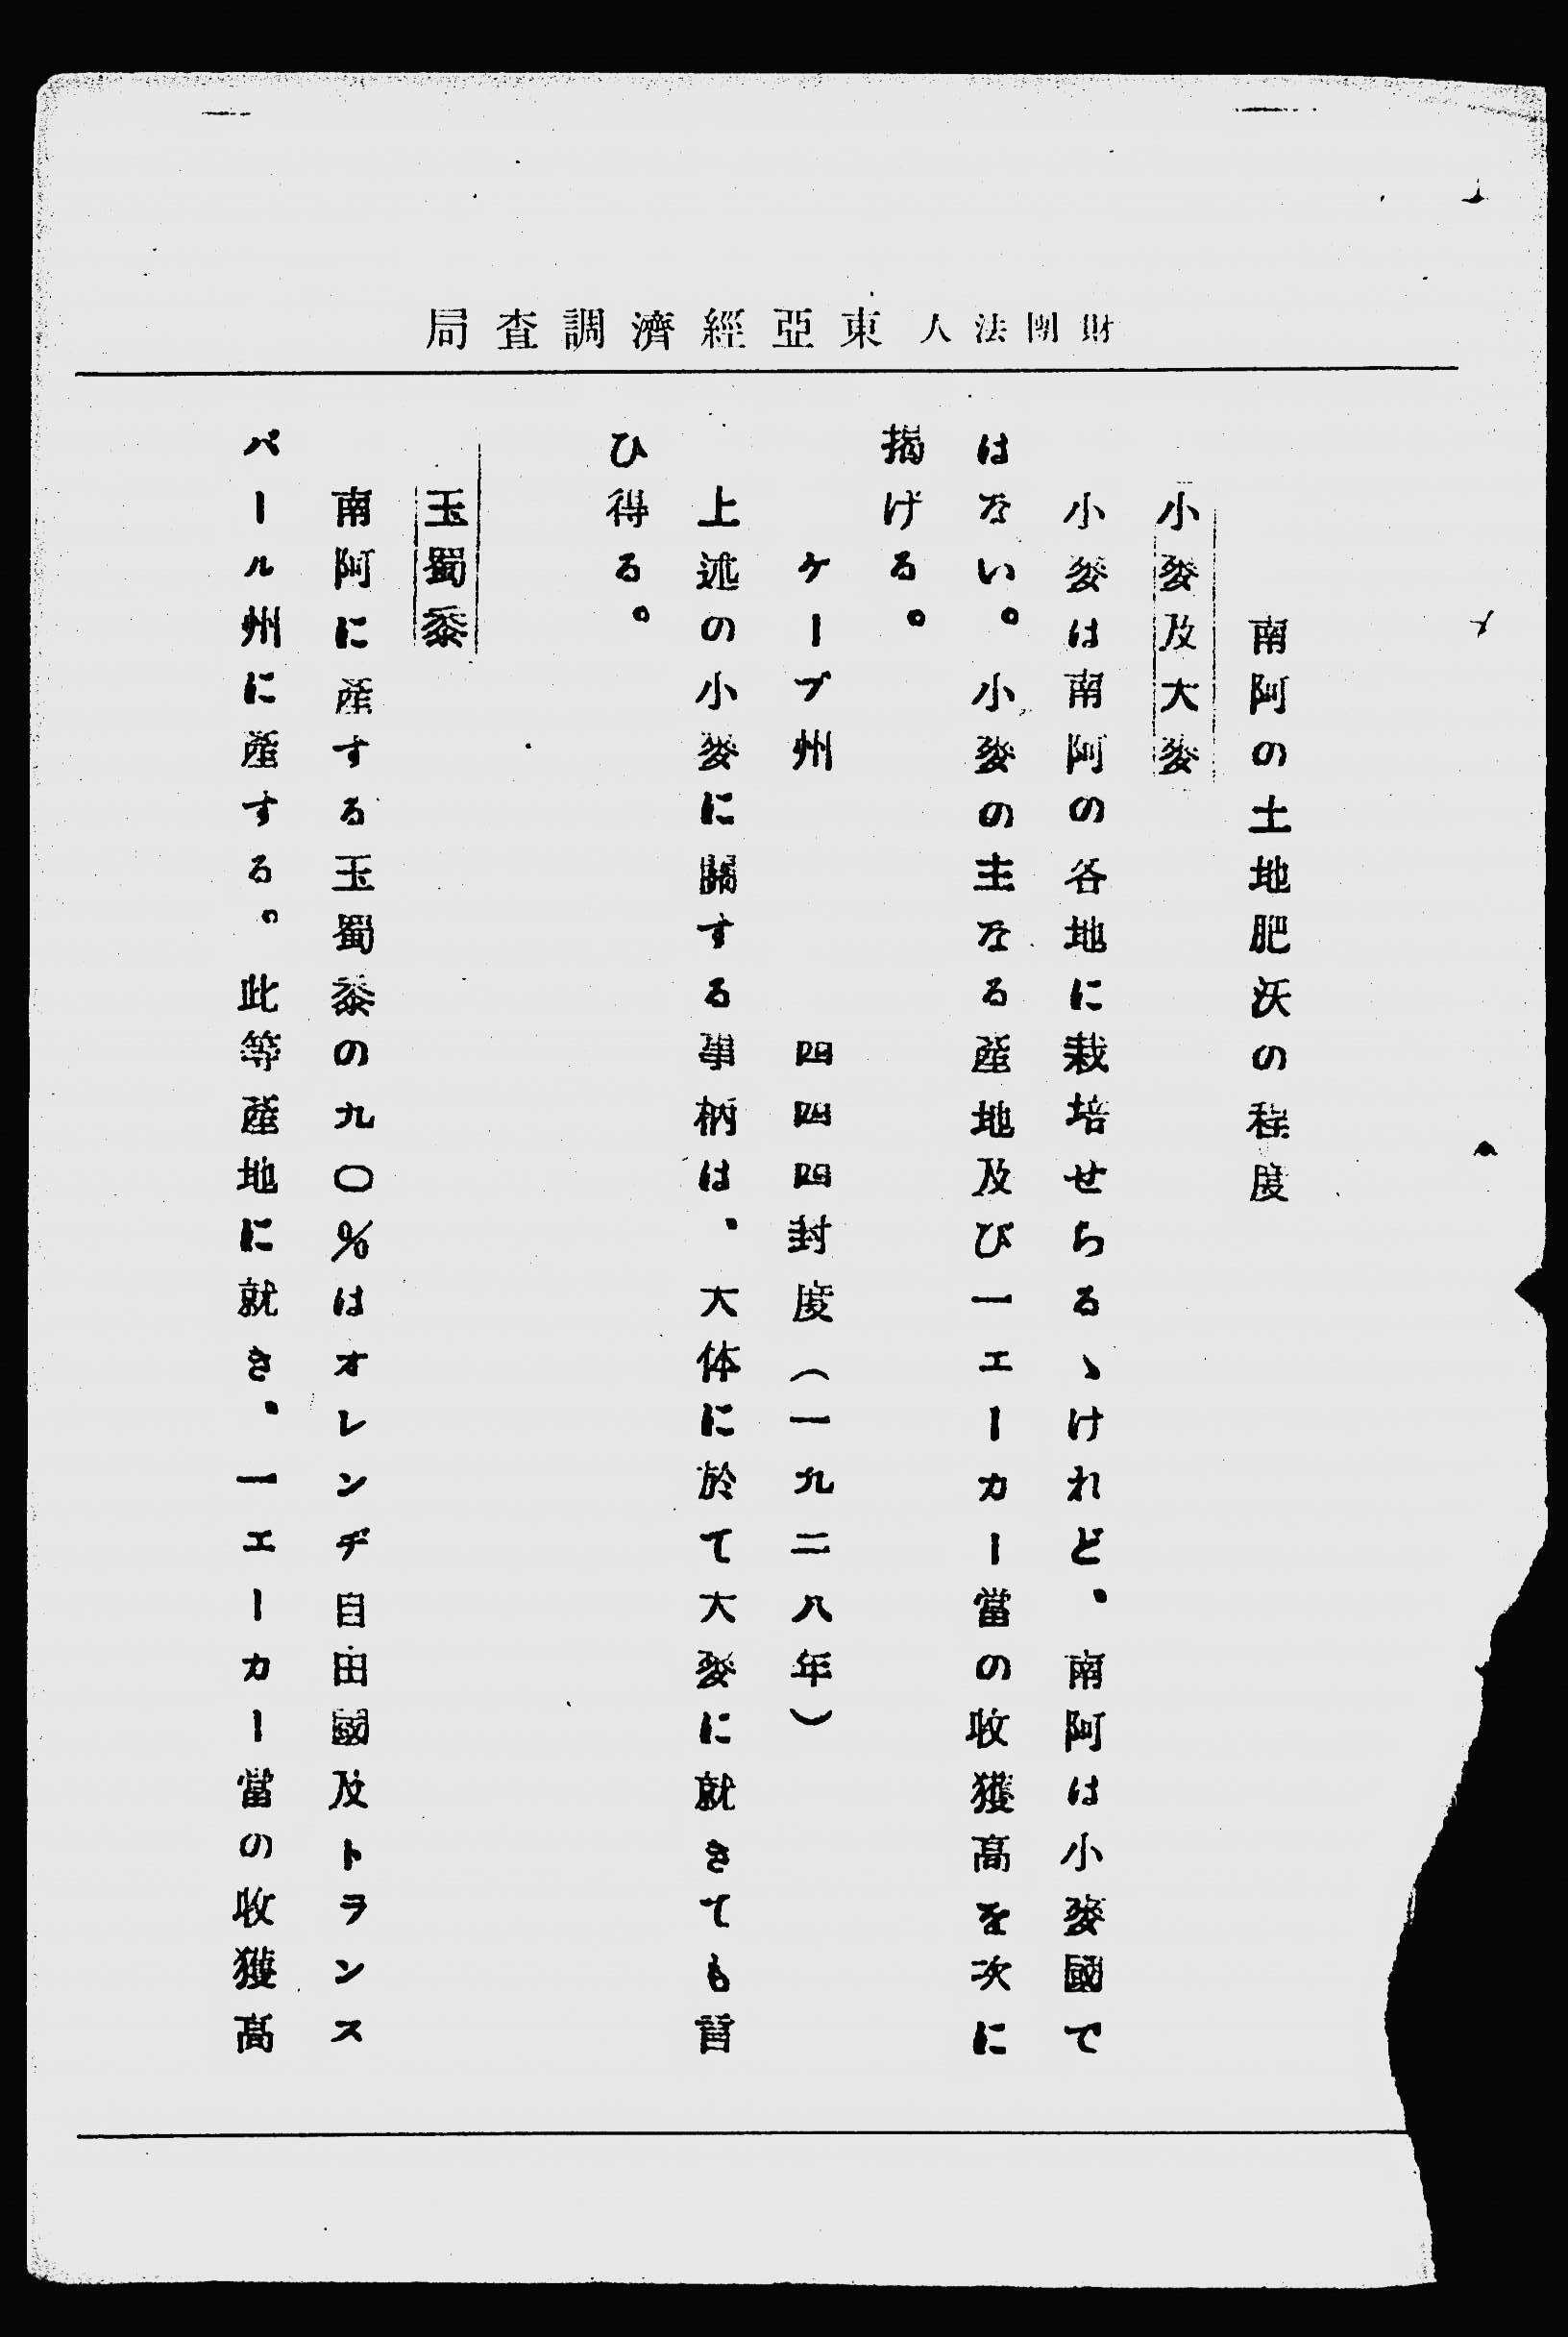 財團法人東亞經濟調査局
南阿の土地肥沃の程度
小麥及大麥
小麥は南阿の各地に栽培せらるゝけれど、南阿は小麥國で
はない。小麥の主なる産地及び一エーカー當の收獲高を次に
揭げる。
ケープ州　四四四封度(一九二八年)
上述の小麥に關する事柄は、大体に於て大麥に就きても言
ひ得る。
玉蜀黍
南阿に産する玉蜀黍の九〇％はオレンヂ自由國及トランス
バール州に産する。此等産地に就き、一エーカー當の收獲高